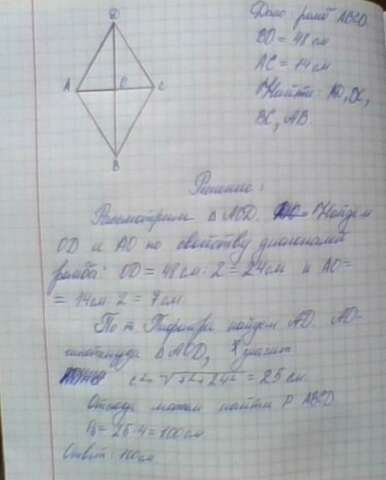 Дано: ромб ABCD
BD = 48 см
AC = 14 см
Найти: AD, DC,
BC, AB
D
A O C
B
Решение:
Рассмотрим △ AOD. Найдем
OD и AO по свойству диагоналей
ромба: OD = 48 см : 2 = 24 см и AO =
= 14 см : 2 = 7 см
По т. Пифагора найдем AD. AD-
гипотенуза △ AOD, значит
c = √7²+24² = 25 см
Отсюда можем найти P ABCD
P = 25·4 = 100 см
Ответ: 100 см